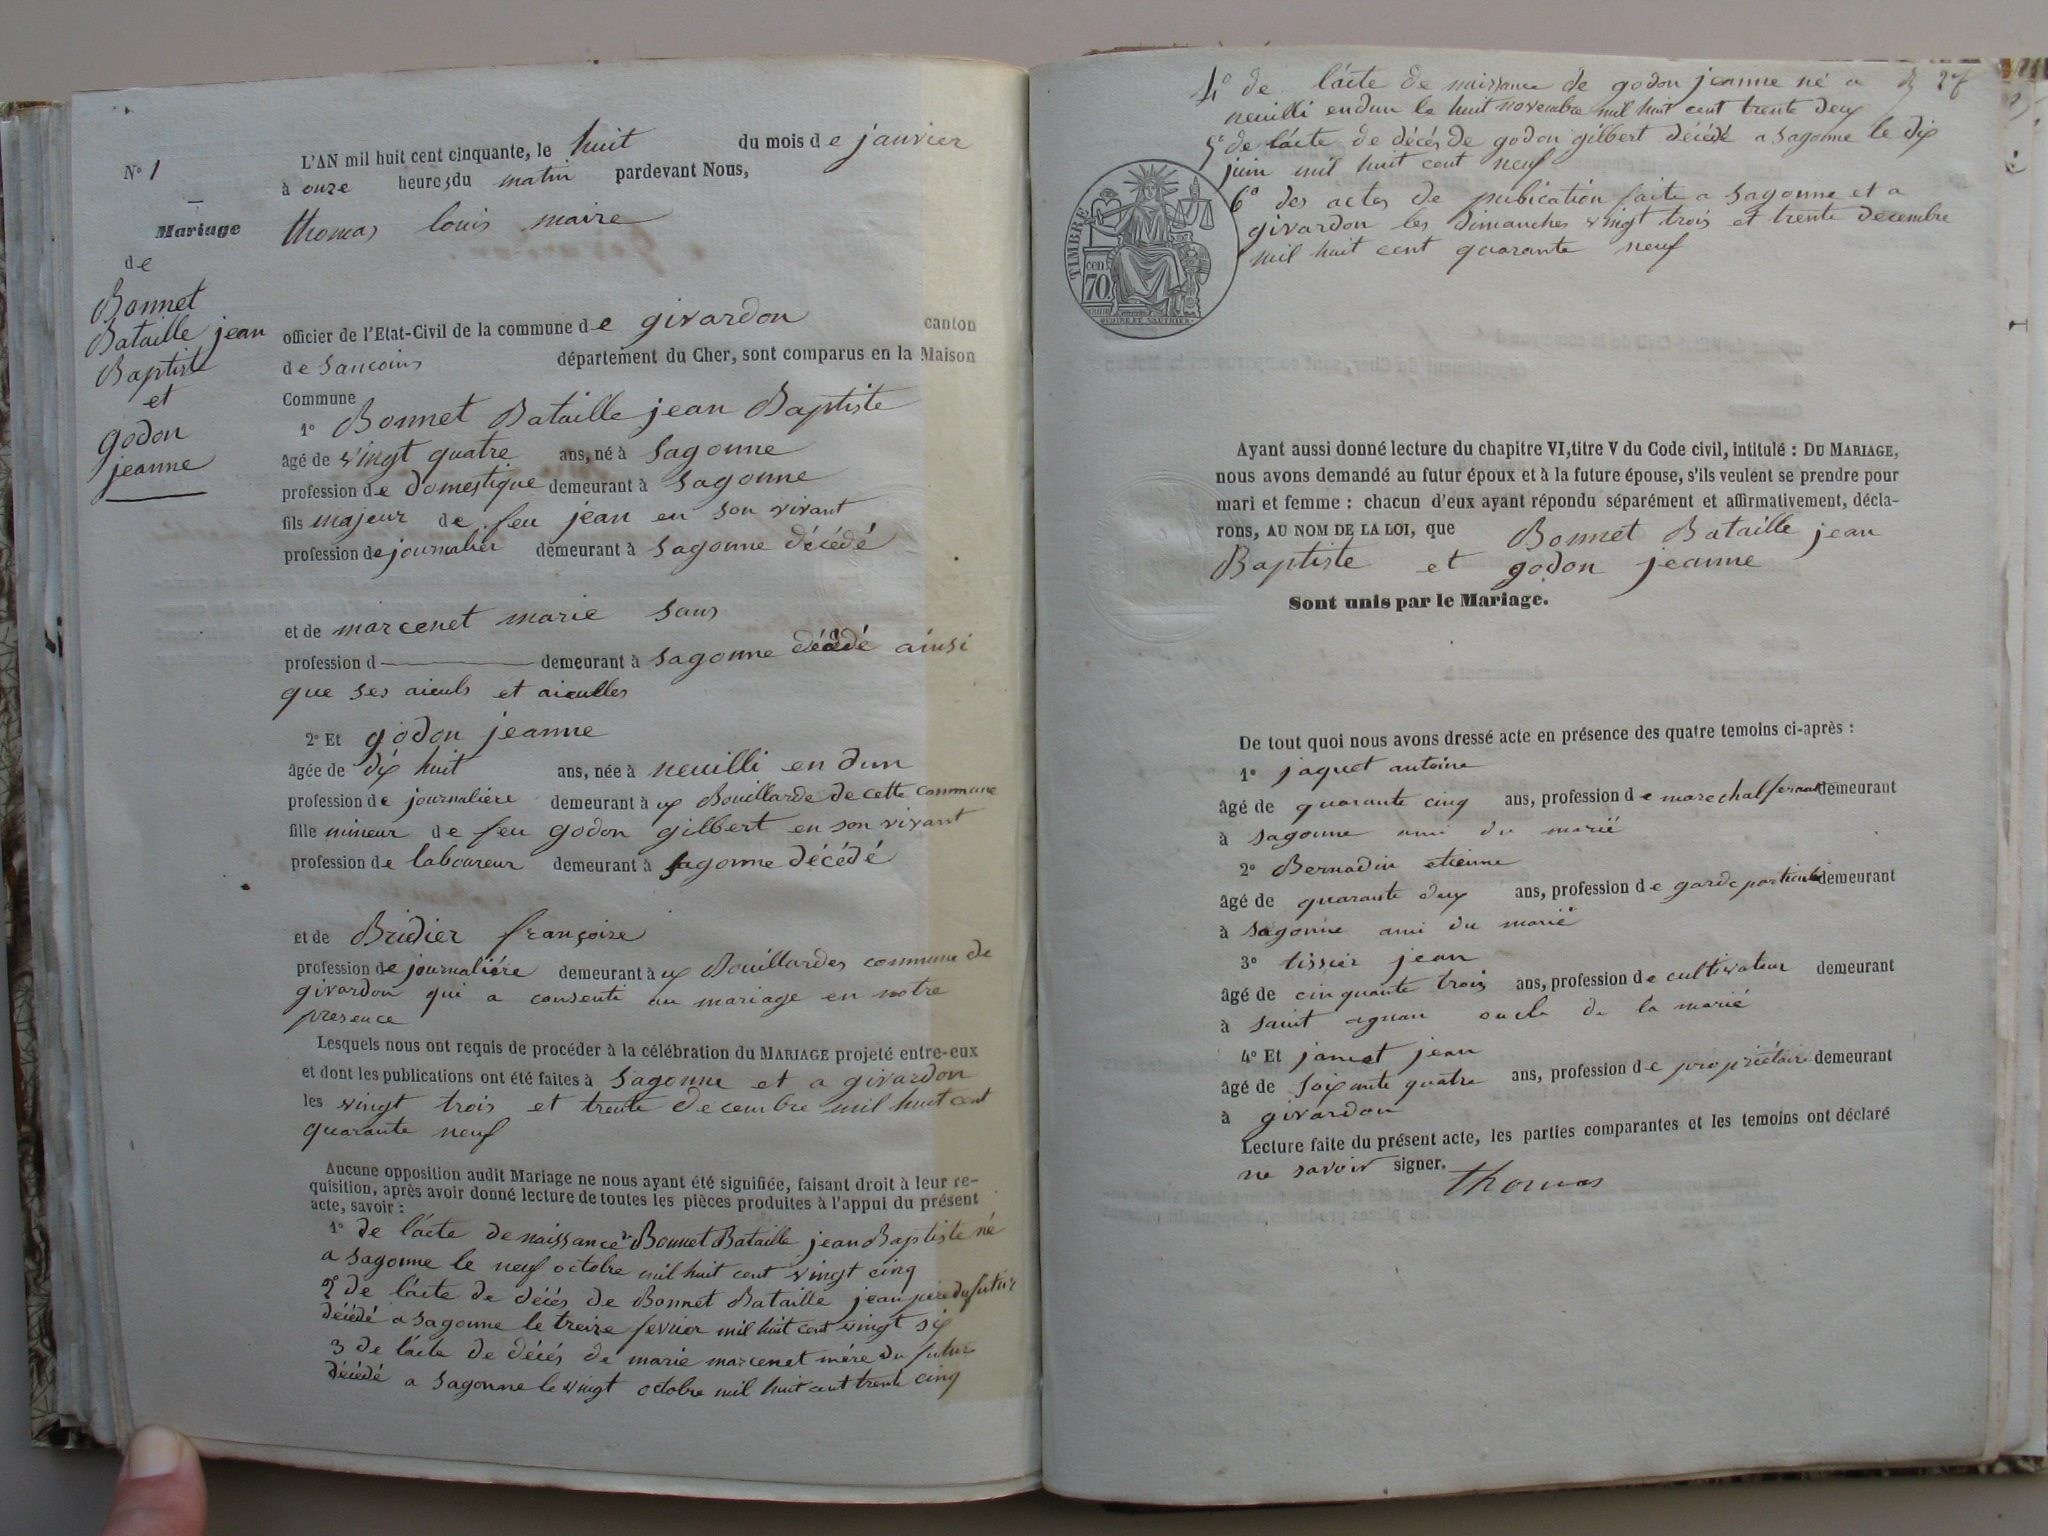 N° 1
Mariage
de
Bonnet
Bataille jean
Baptiste
et
godon
jeanne
L'AN mil huit cent cinquante, le huit du mois de janvier
à onze heures du matin pardevant Nous,
thomas louis maire
officier de l'Etat-Civil de la commune de givardon canton
de Sancoins département du Cher, sont comparus en la Maison
Commune
1° Bonnet Bataille jean Baptiste
âgé de vingt quatre ans, né à Sagonne
profession de domestique demeurant à Sagonne
fils majeur de feu jean en son vivant
profession de journalier demeurant à Sagonne décédé
et de marcenet marie sans
profession d demeurant à Sagonne décédé ainsi
que ses aieuls et aieulles
2° Et godon jeanne
âgée de dix huit ans, née à neuilli en dun
profession de journalière demeurant à ux Bouillarde de cette commune
fille mineur de feu godon gilbert en son vivant
profession de laboureur demeurant à Sagonne décédé
et de Bridier françoise
profession de journalière demeurant à ux Bouillardes commune de
givardon qui a consenti au mariage en notre
presence
Lesquels nous ont requis de procéder à la célébration du MARIAGE projeté entre-eux
et dont les publications ont été faites à Sagonne et a givardon
les vingt trois et trente decembre mil huit cent
quarante neuf
Aucune opposition audit Mariage ne nous ayant été signifiée, faisant droit à leur re-
quisition, après avoir donné lecture de toutes les pièces produites à l'appui du présent
acte, savoir :
1° de l'acte de naissance de Bonnet Bataille jean Baptiste né
a Sagonne le neuf octobre mil huit cent vingt cinq
2° de l'acte de décés de Bonnet Bataille jean père du futur
décédé a Sagonne le treize fevrier mil huit cent vingt six
3 de l'acte de décés de marie marcenet mére du futur
décédé a Sagonne le vingt octobre mil huit cent trente cinq
4° de l'acte de naissance de godon jeanne né a
neuilli endun le huit novembre mil huit cent trente deux
5° de l'acte de décés de godon gilbert décédé a Sagonne le dix
juin mil huit cent neuf
6° des actes de publication faite a Sagonne et a
givardon les dimanches vingt trois et trente decembre
mil huit cent quarante neuf
TIMBRE
cen
70.
Ayant aussi donné lecture du chapitre VI, titre V du Code civil, intitulé : DU MARIAGE,
nous avons demandé au futur époux et à la future épouse, s'ils veulent se prendre pour
mari et femme : chacun d'eux ayant répondu séparément et affirmativement, décla-
rons, AU NOM DE LA LOI, que Bonnet Bataille jean
Baptiste et godon jeanne
Sont unis par le Mariage.
De tout quoi nous avons dressé acte en présence des quatre temoins ci-après :
1° jaquet antoine
âgé de quarante cinq ans, profession de marechal ferrant demeurant
à Sagonne ami du marié
2° Bernadin etienne
âgé de quarante deux ans, profession de garde particulier demeurant
à Sagonne ami du marié
3° tissier jean
âgé de cinquante trois ans, profession de cultivateur demeurant
à saint agnan oncle de la marié
4° Et jamet jean
âgé de soixante quatre ans, profession de propriétaire demeurant
à givardon
Lecture faite du présent acte, les parties comparantes et les temoins ont déclaré
ne savoir signer.
thomas